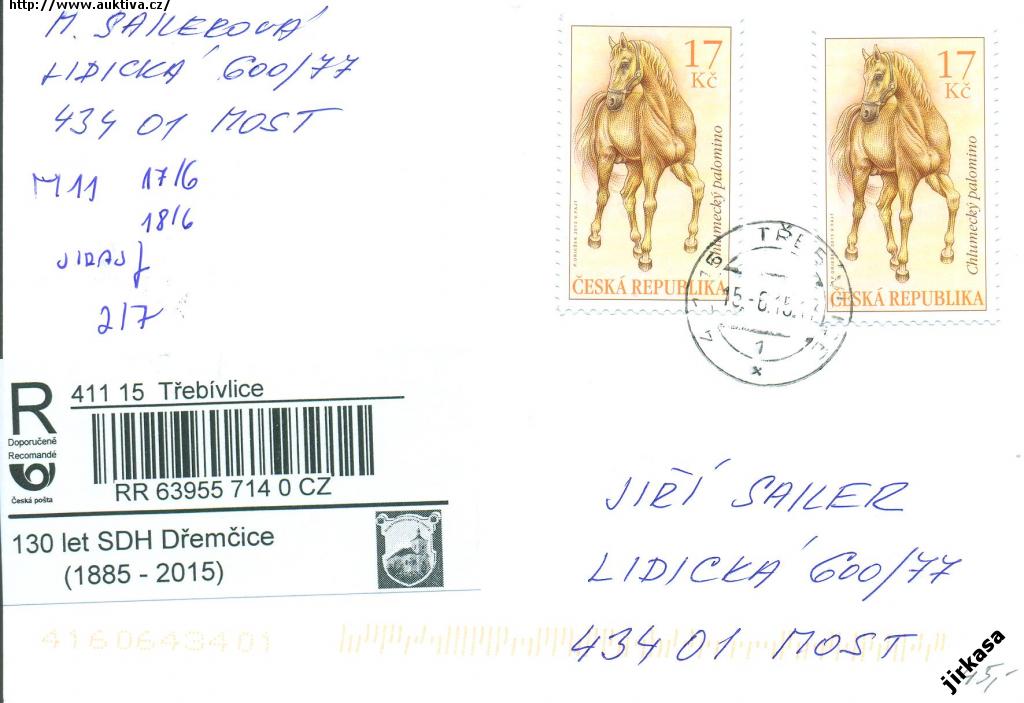 http://www.auktiva.cz/
M. SAILEROVÁ
LIDICKÁ 600/77
434 01 MOST
M11 17/6
18/6
2/7
17
Kč
Chlumecký palomino
ČESKÁ REPUBLIKA
17
Kč
Chlumecký palomino
ČESKÁ REPUBLIKA
15.-6.15
1
x
R
Doporučeně
Recomandé
Česká pošta
411 15 Třebívlice
RR 63955 714 0 CZ
130 let SDH Dřemčice
(1885 - 2015)
JIŘÍ SAILER
LIDICKÁ 600/77
434 01 MOST
4160643401
jirkasa
15,-